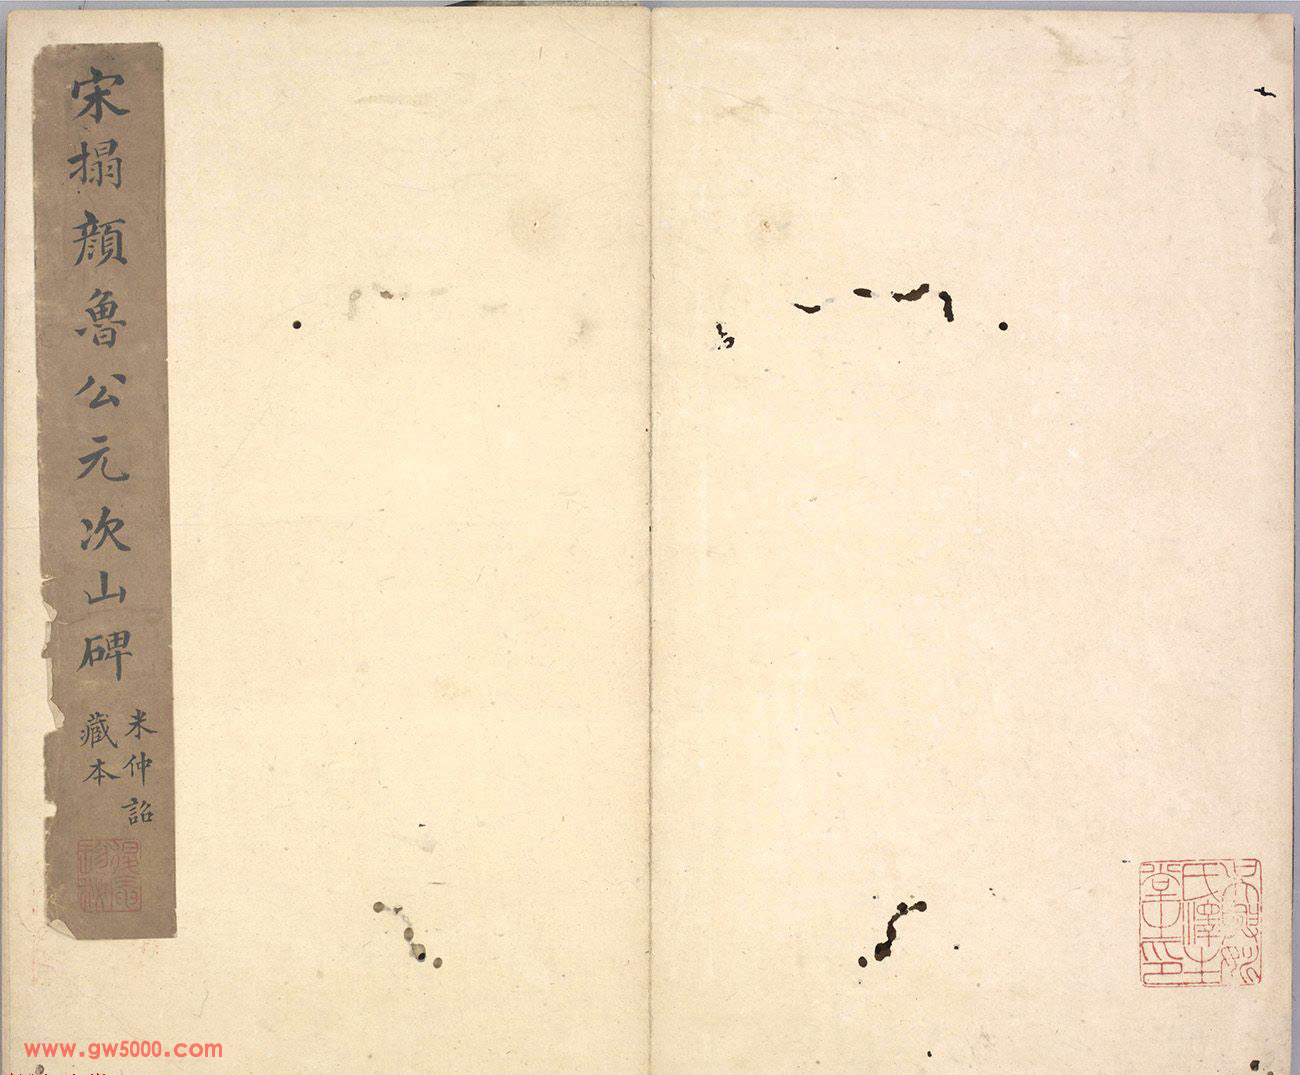 宋搨顔魯公元次山碑
米仲詔
藏本
www.gw5000.com